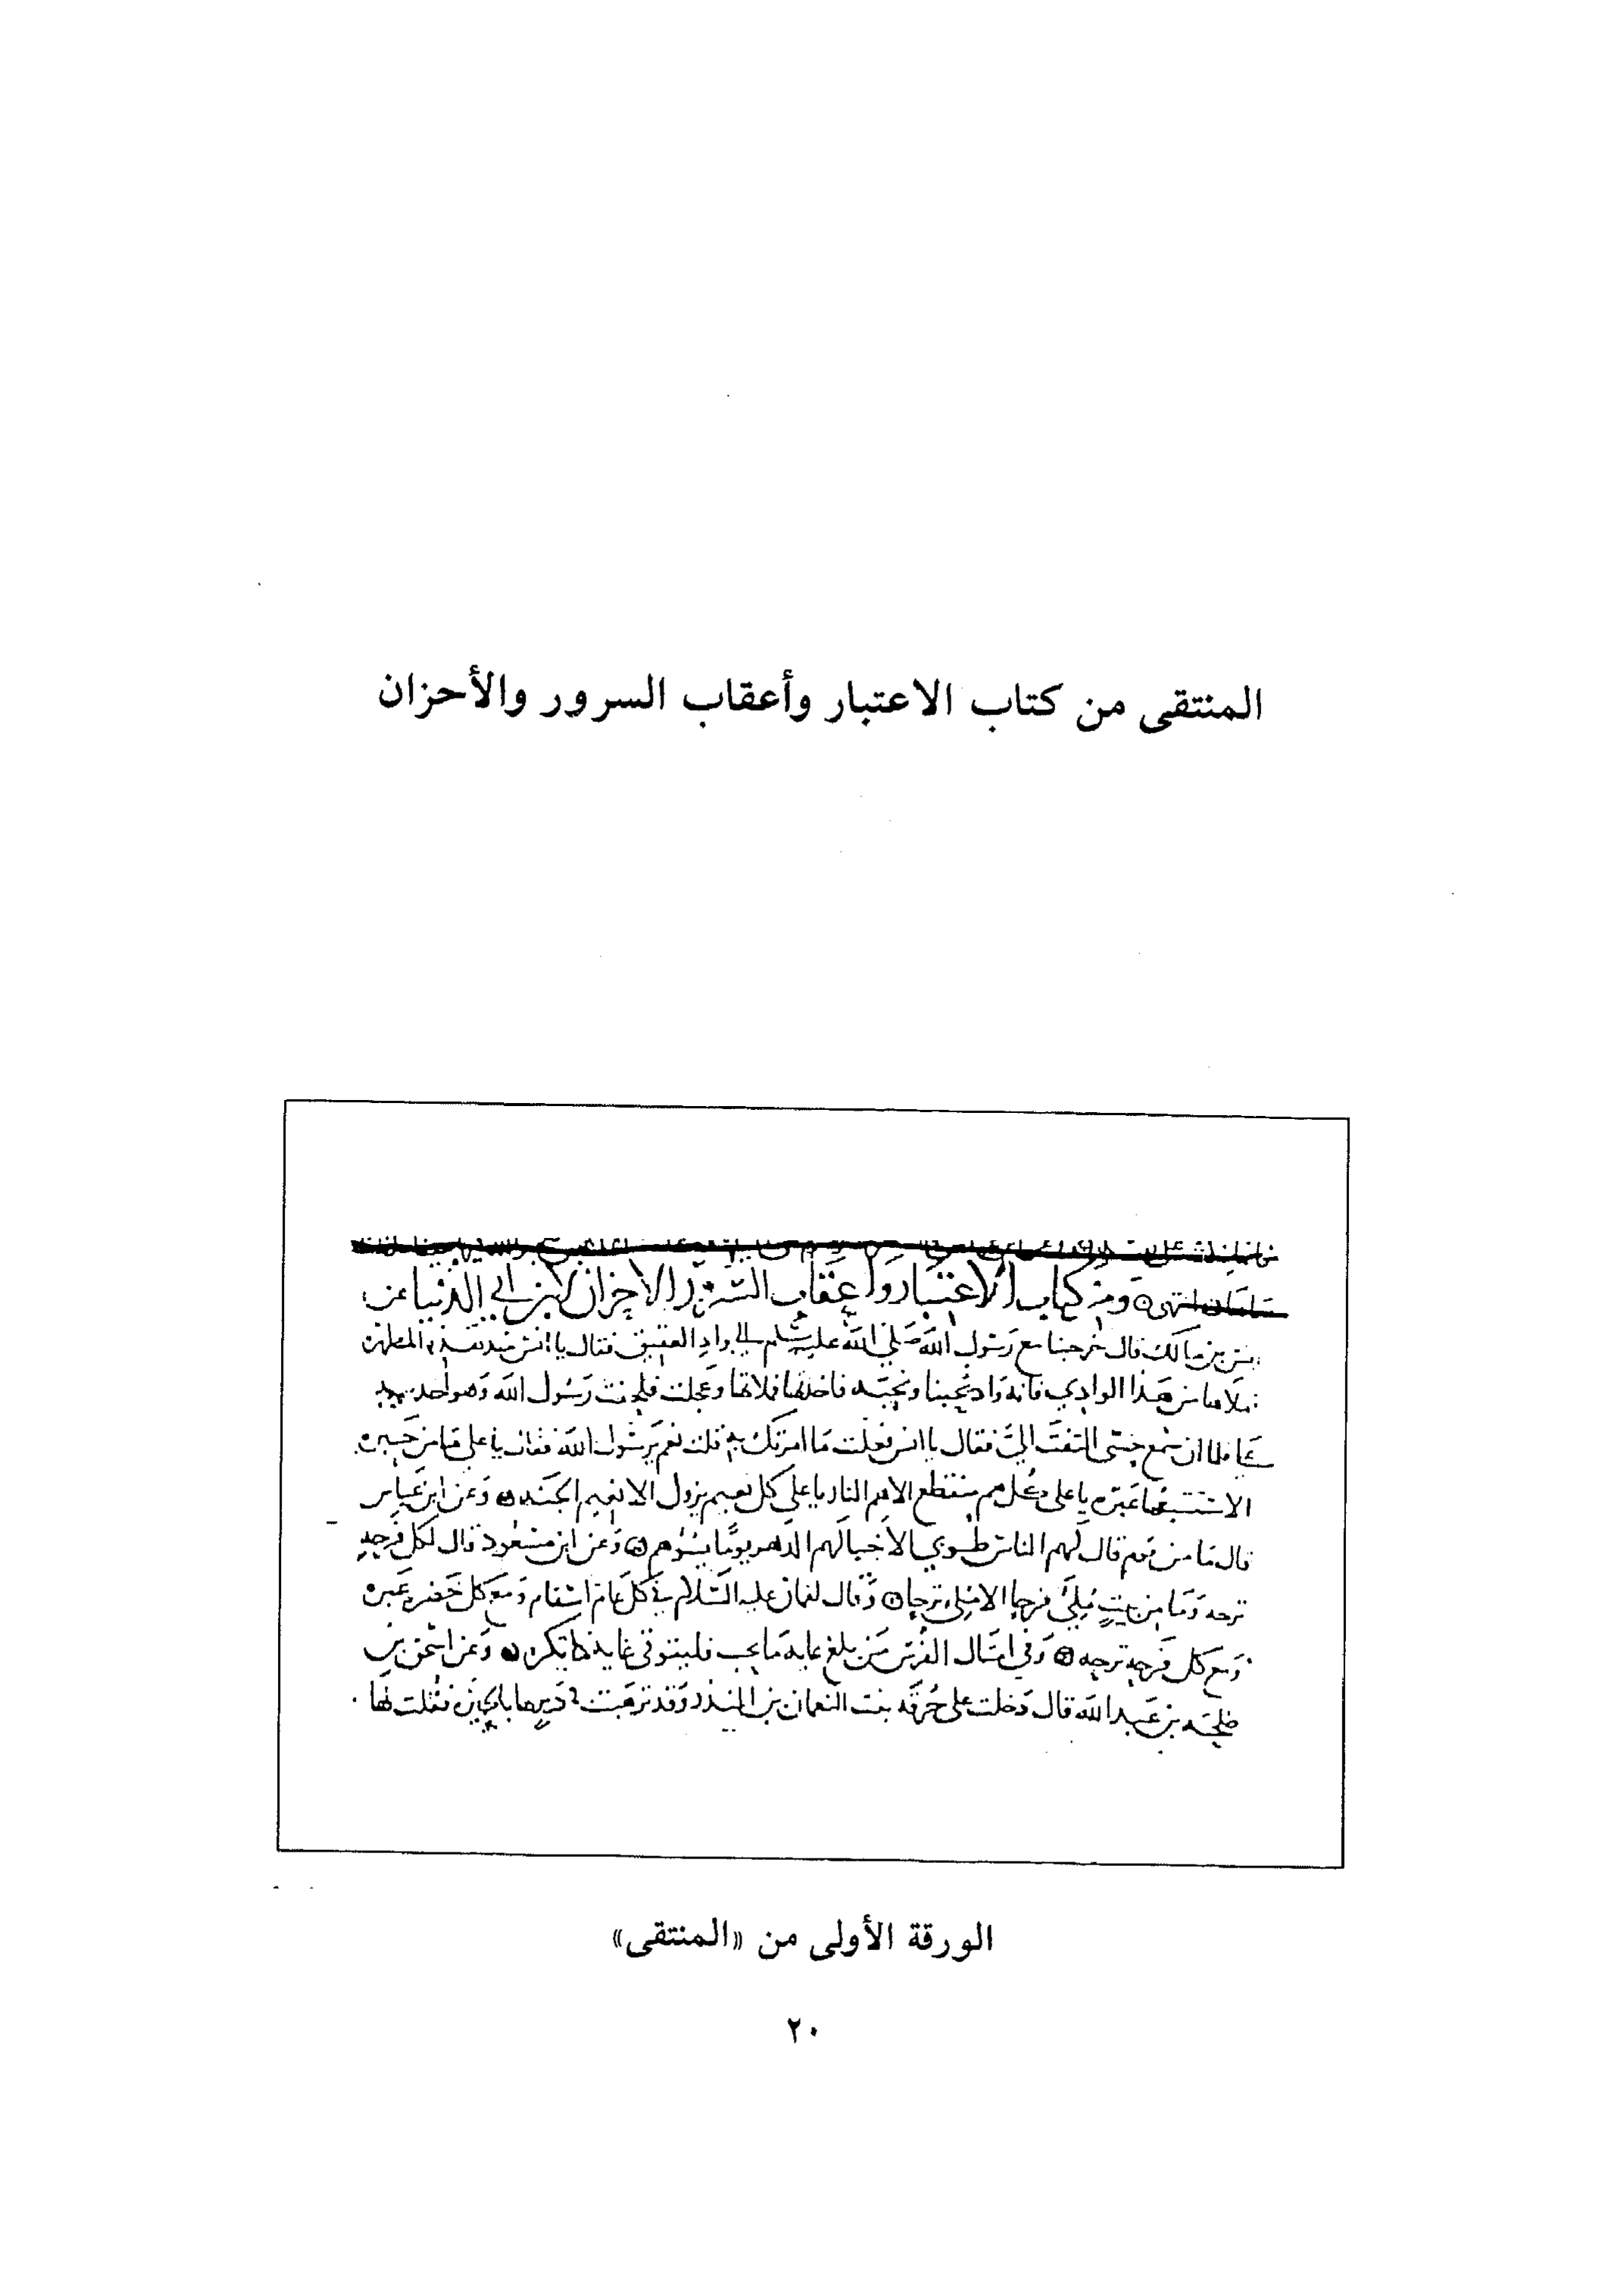 المنتقى من كتاب الاعتبار وأعقاب السرور والأحزان
سلمان انتهى ومن كتاب الاعتبار واعقاب السرور والاحزان لابن ابي الدنيا عن
انس بن مالك قال خرجنا مع رسول الله صلى الله عليه وسلم الى وادي العقيق فقال يا انس خذ هذه المطهرة
املاها من هذا الوادي فانه واد يحبنا ونحبه فاخذتها فملاتها وعجلت فلحقت رسول الله وهو اخذ بيد
علي فلما ان سمع حسي التفت الي فقال يا انس فعلت ما امرتك به قلت نعم يرسول الله فقال يا علي ما من حبره
الا ستتبعها عبره يا علي كل هم منقطع الا هم النار يا علي كل نعيم يزول الا نعيم الجنه وعن ابن عباس
قال ما من قوم قال لهم الناس طوبى الا خبا لهم الدهر يوما يسؤهم وعن ابن مسعود قال لكل فرحه
ترحه وما من بيت ملئ فرحا الا ملئ ترحا وقال لقمان عليه السلام في كل عام اسقام ومع كل حبره عبره
ومع كل فرحه ترحه وفي امثال الفرس من بلغ غايه ما يحب فليتوقى غايه ما يكره وعن اسحق بن
طلحه بن عبد الله قال دخلت على حرقه بنت النعمان بن المنذر وقد ترهبت في دير لها بالحيره فقلت لها
الورقة الأولى من «المنتقى»
٢٠